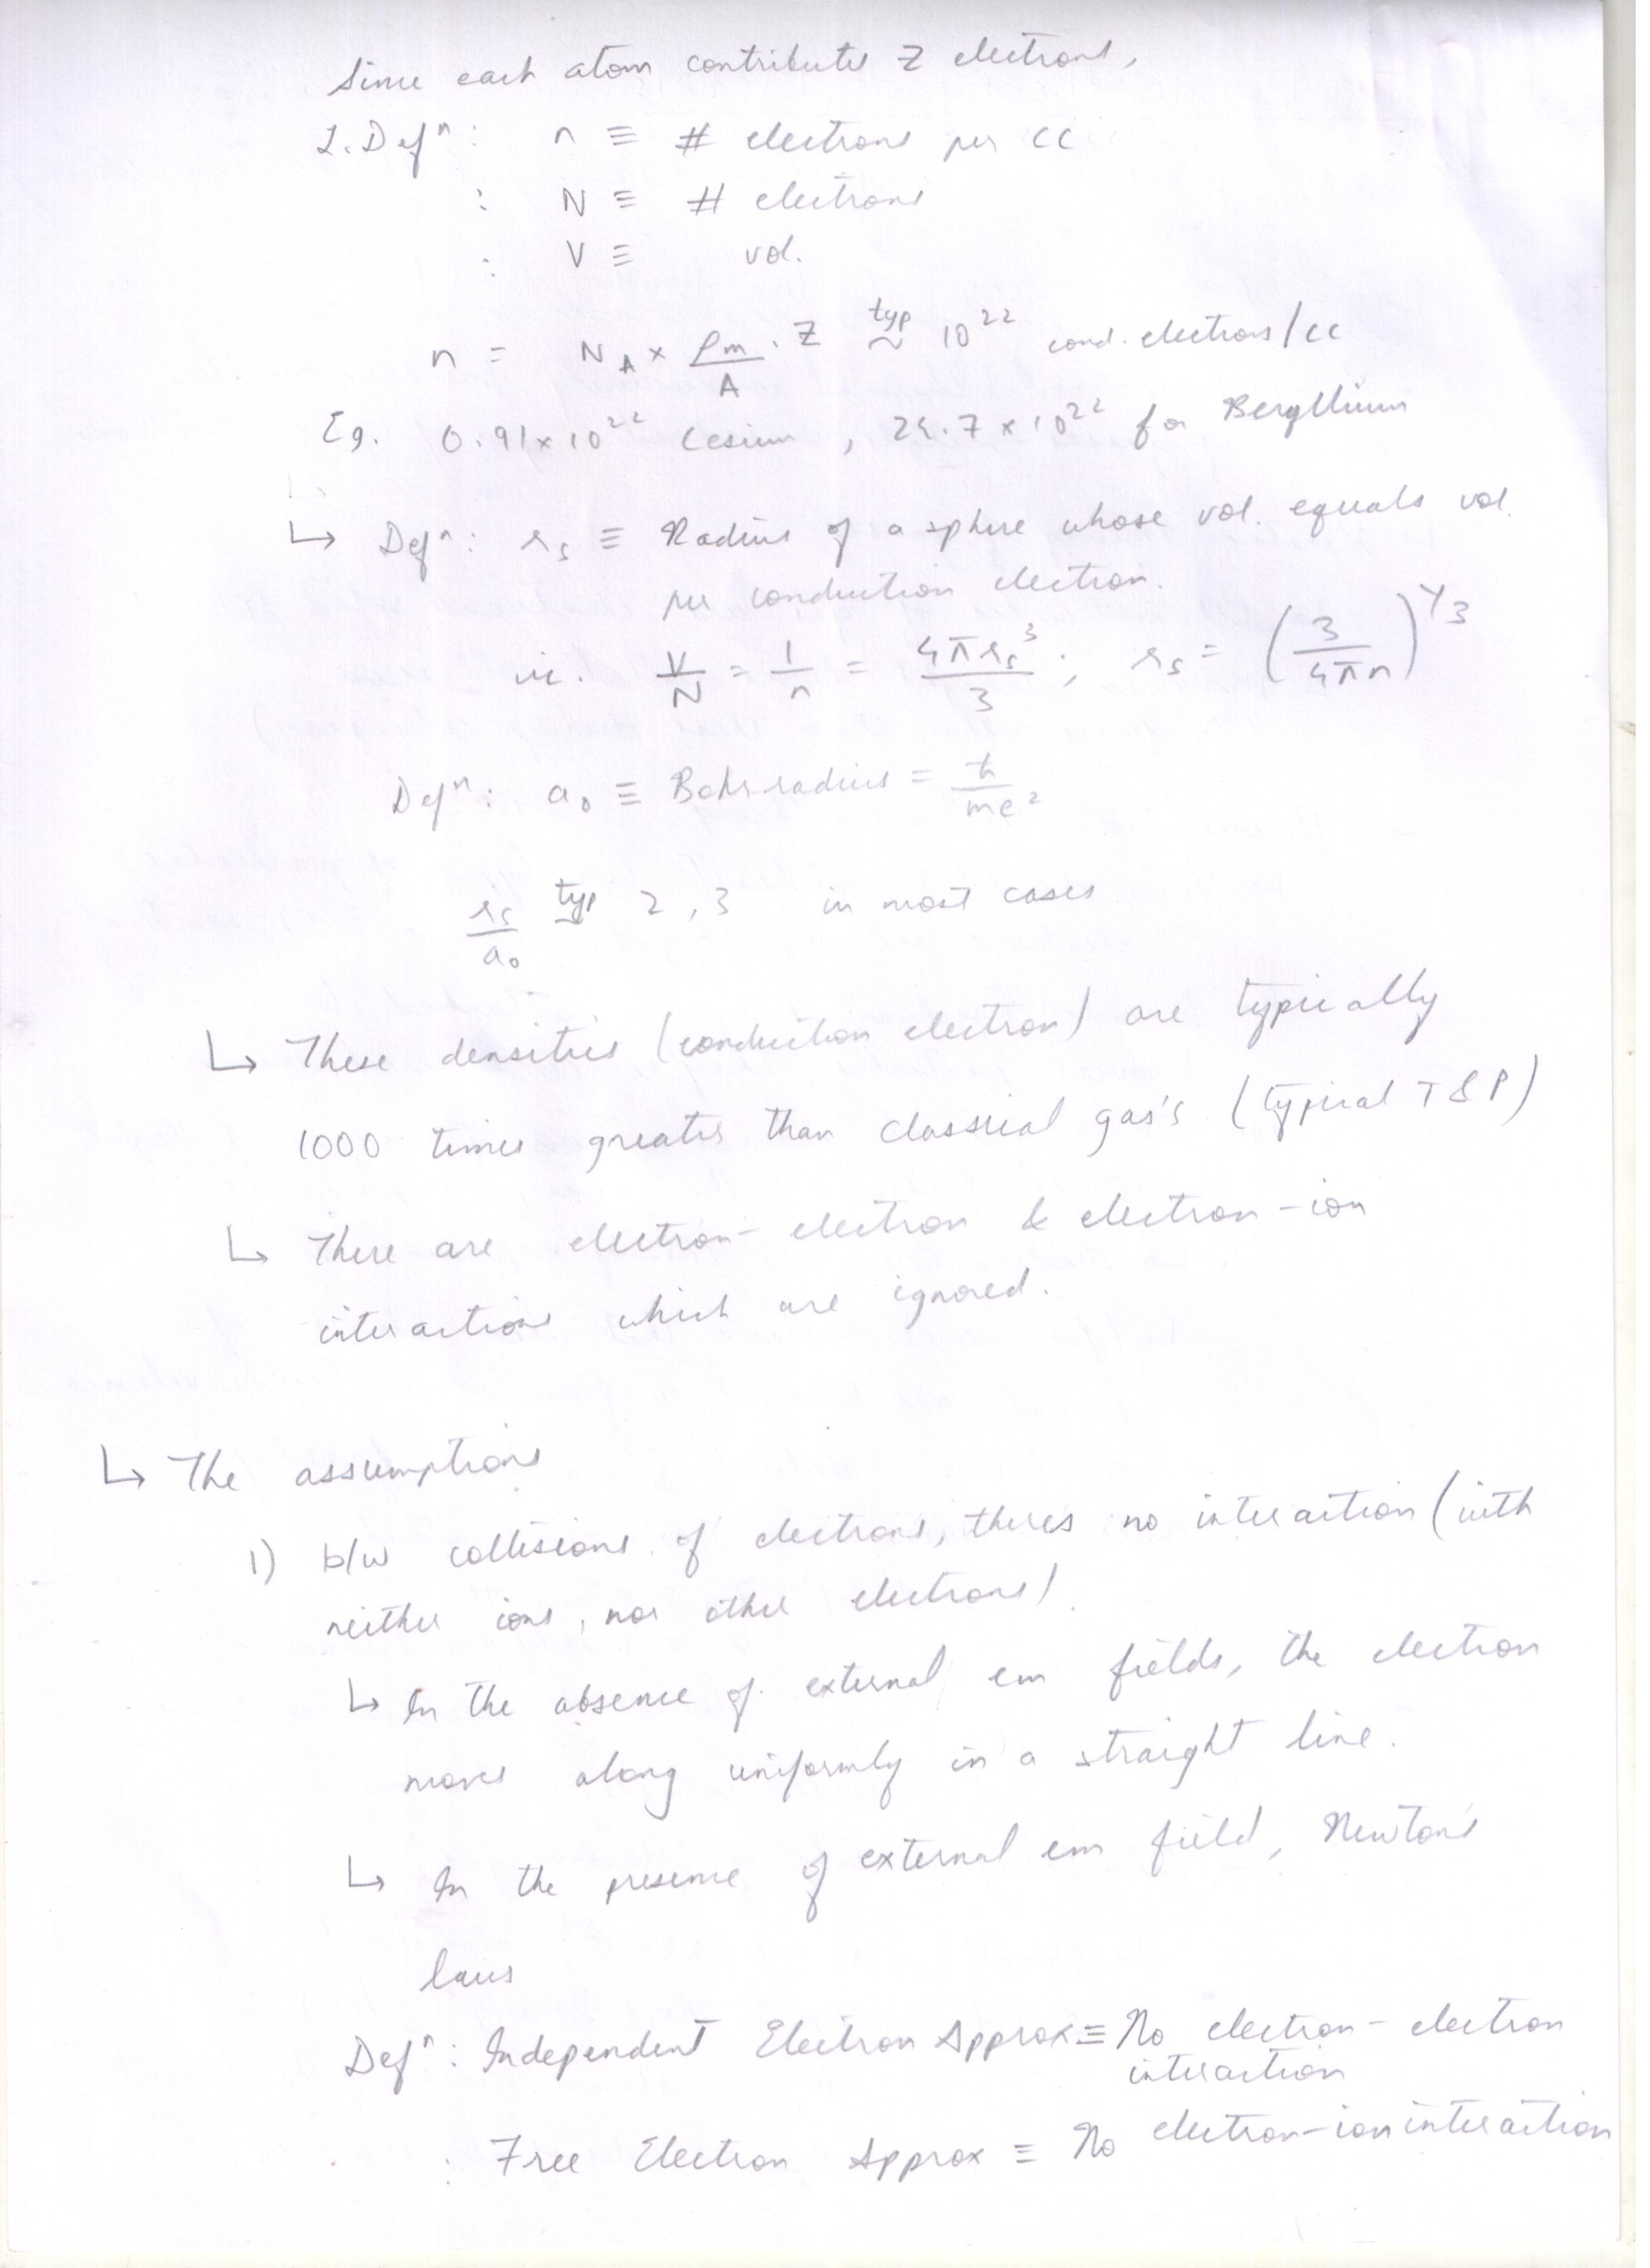 Since each atom contributes Z electrons,
2. Defⁿ: n ≡ # electrons per cc
: N ≡ # electrons
: V ≡ vol.
n = N_A × ρm/A . Z typ ~ 10²² cond. electrons/cc
Eg. 0.91×10²² Cesium, 24.7×10²² for Beryllium
↳ Defⁿ: rs ≡ Radius of a sphere whose vol. equals vol.
per conduction electron.
ie. V/N = 1/n = 4πrs³/3 ; rs = (3/4πn)^1/3
Defⁿ: a₀ ≡ Bohr radius = ħ/me²
rs/a₀ typ ~ 2, 3 in most cases
↳ These densities (conduction electron) are typically
1000 times greater than classical gas's (typical T & P)
↳ There are electron-electron & electron-ion
interactions which are ignored.
↳ The assumptions
1) b/w collisions of electrons, theres no interaction (with
neither ions, nor other electrons)
↳ In the absence of external em fields, the electron
moves along uniformly in a straight line.
↳ In the presence of external em field, Newton's
laws
Defⁿ: Independent Electron Approx ≡ No electron-electron
interaction
: Free Electron Approx ≡ No electron-ion interaction